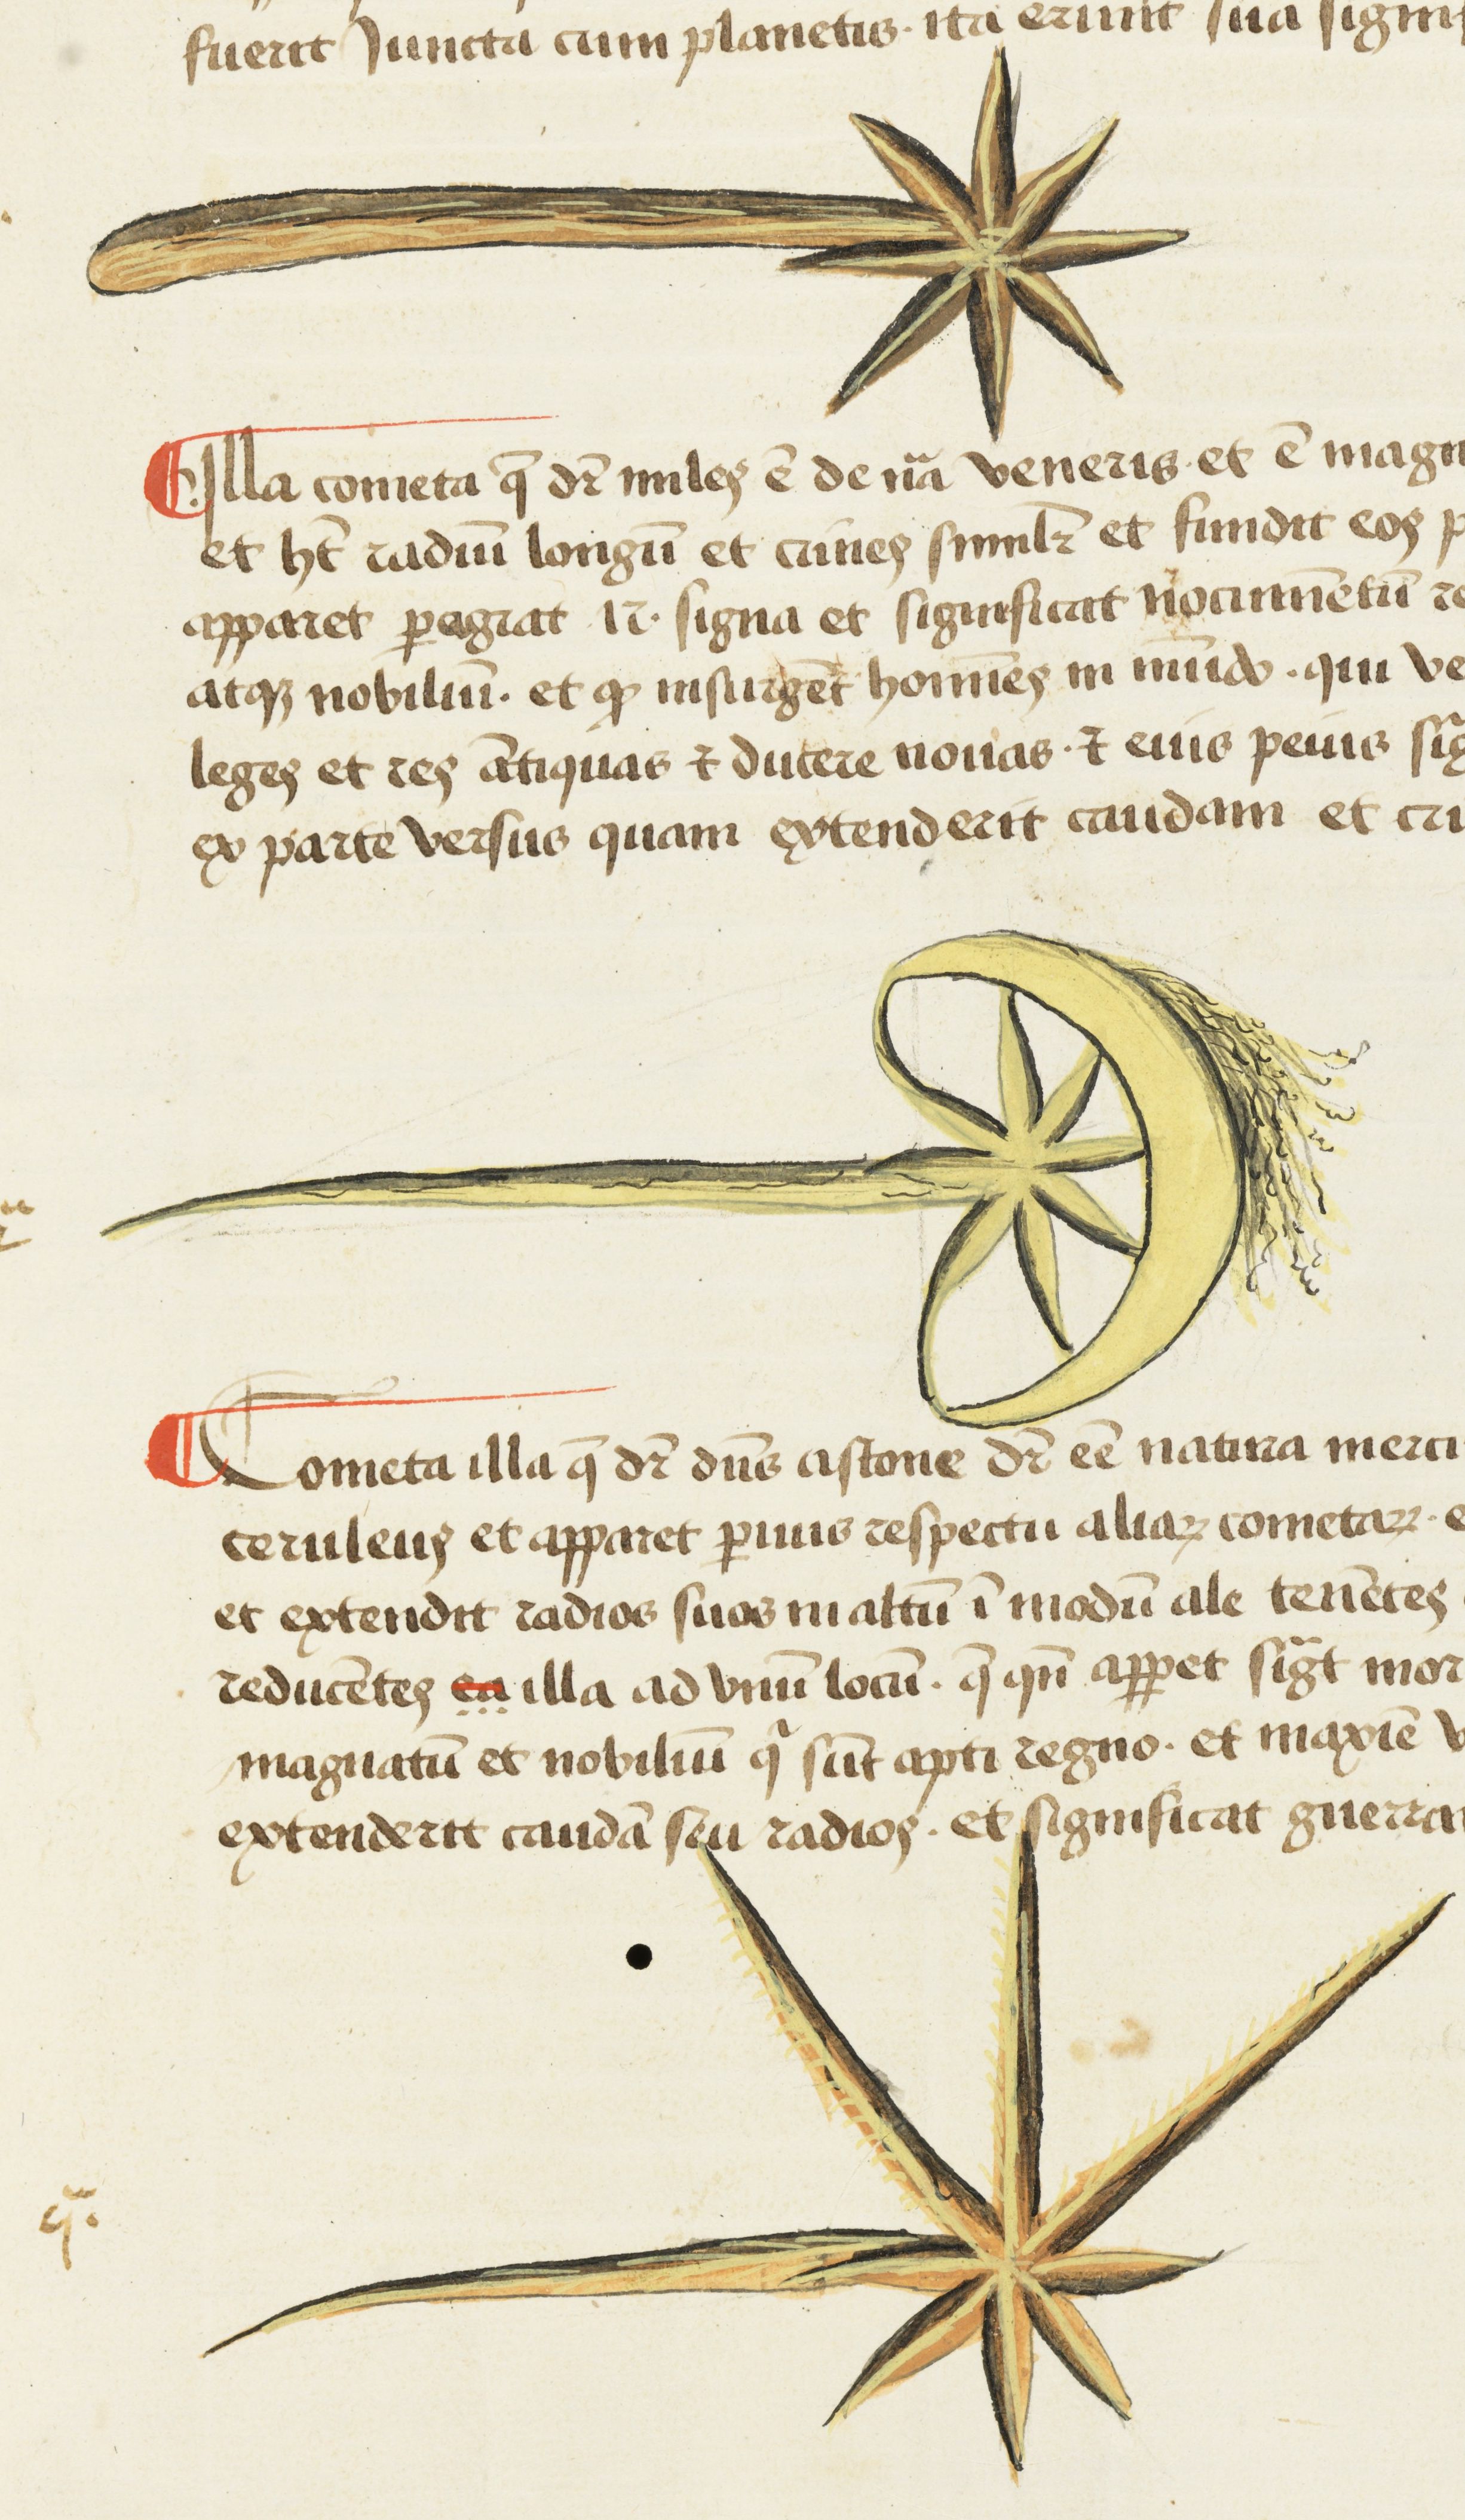 fuerit Juncta cum planetis · ita erunt sua signi
Illa cometa q̄ dr̄ miles ē de nā veneris · et ē magn
et ht̄ radiū longū et crines simil'r et fundit eos p
apparet peragrat 12 · signa et significat nocumētū re
atqꝫ nobiliū · et ꝙ insurgēt homīes in mūdo · qui ve
leges et res ātiquas ⁊ ducere nouas · ⁊ eius peius sig
ex parte versus quam extenderit caudam et cri
Cometa illa q̄ dr̄ dn̄s astone dr̄ eē natura mercu
ceruleus et apparet paruus respectu aliaꝝ cometaꝝ · e
et extendit radios suos in altū ī modū ale tenētes
reducētes ea illa ad vnū locū · q̄ qn̄ apparet sigt mor
magnatū et nobiliū q sūt apti regno · et maxīe v
extenderit caudā seu radios · et significat guerra
q̄ ·